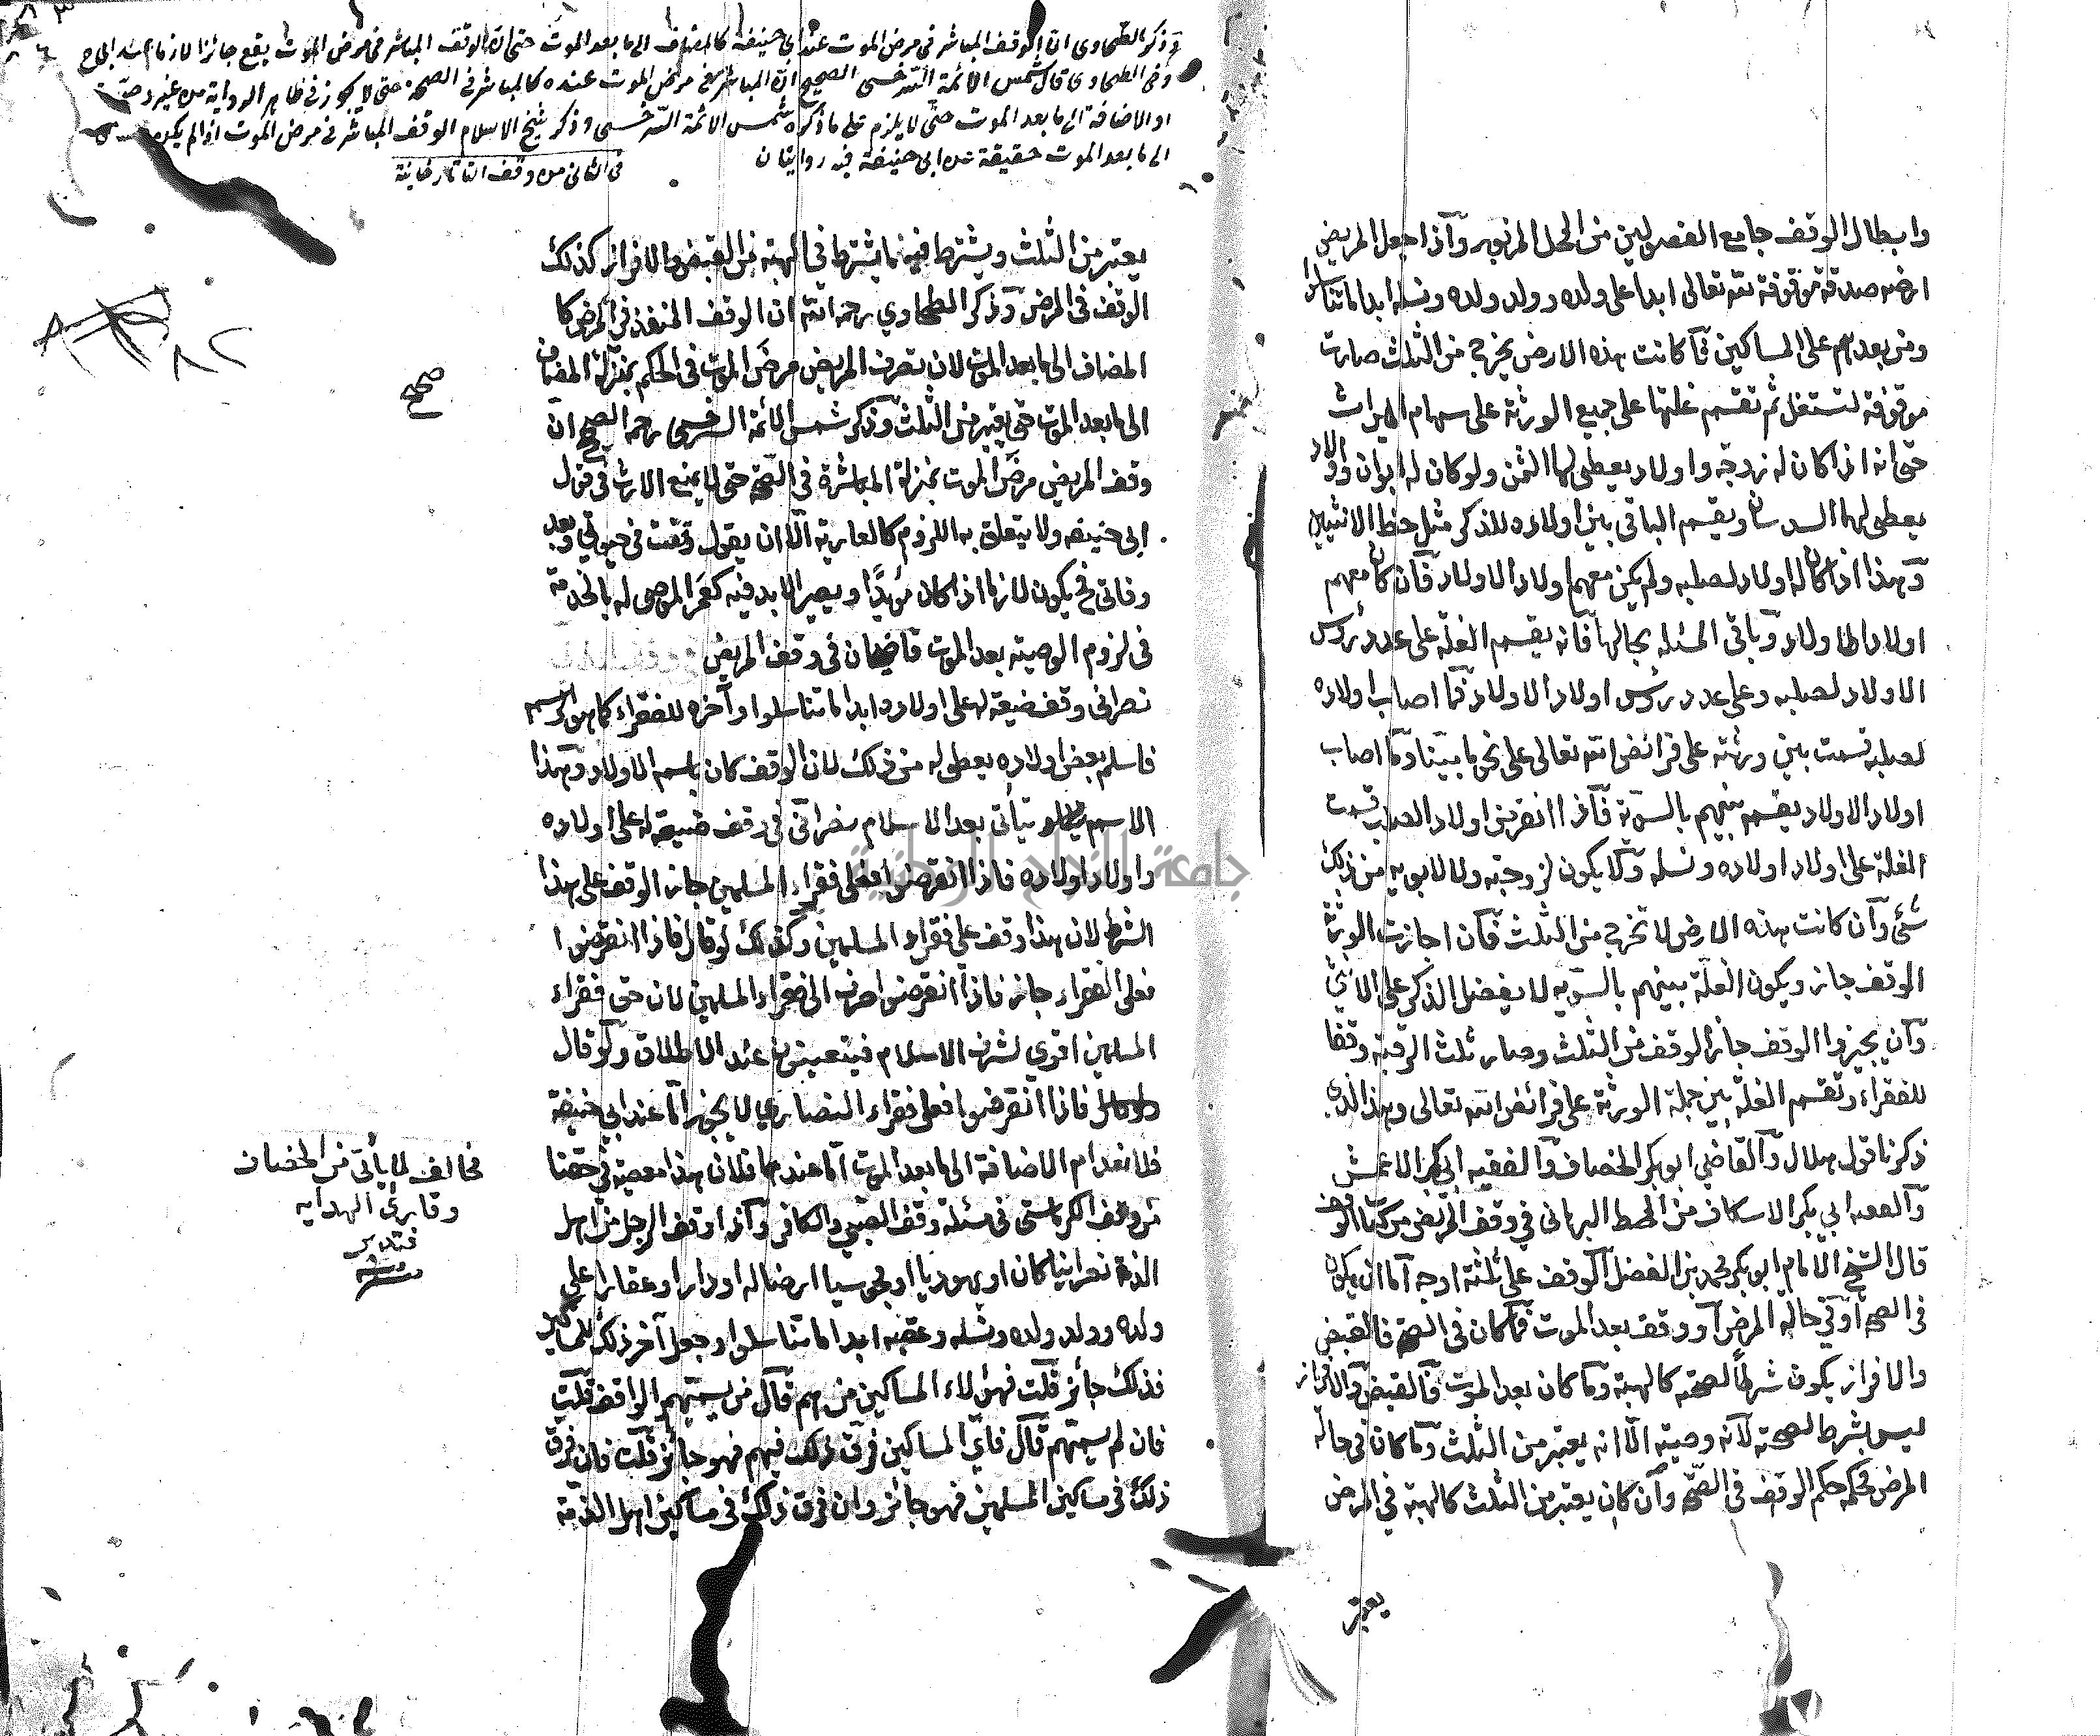 وابطال الوقف جامع الفصولين من المحل المزبور وآذا جعل المريض
ارضه صدقة موقوفة لله تعالى ابدا على ولده وولد ولده ونسله ابدا ما تناسلوا
ومن بعدهم على المساكين فآ كانت هذه الارض يخرج من الثلث صارت
موقوفة لتستغل ثم تقسم غلتها على جميع الورثة على سهام الميراث
حتى انه اذا كان له زوجة واولاد يعطى لها الثمن ولو كان له ابوان واولاد
يعطى لهما السدسان ويقسم الباقى بين اولاده للذكر مثل حظ الانثيين
وهذا اذا كان له اولاد لصلبه ولم يكن معهم اولاد الاولاد فان كان معهم
اولاد الاولاد وباقى المسئلة بحالها فانه يقسم الغلة على عدد رؤس
الاولاد لصلبه وعلى عدد رؤس اولاد الاولاد فما اصاب اولاده
لصلبه قسمت بين ورثته على فرائض الله تعالى على نحو ما بينا وما اصاب
اولاد الاولاد يقسم بينهم بالسوية فاذا انقرض اولاد الصلب قسمت
الغلة على اولاد اولاده ونسله ولا يكون لزوجته ولا لابويه من ذلك
شئ وان كانت هذه الارض لا تخرج من الثلث فان اجازت الورثة
الوقف جاز ويكون الغلة بينهم بالسوية لا يفضل الذكر على الانثى
وان يجيزوا الوقف جاز الوقف من الثلث وصار ثلث الرقبة وقفا
للفقراء وتقسم الغلة بين جملة الورثة على فرائض الله تعالى وهذا الذى
ذكرنا قول هلال والقاضي ابو بكر الخصاف والفقيه ابى بكر الاعمش
والفقيه ابي بكر الاسكاف من المحيط البرهانى في وقف المريض من كتاب الوقف
قال الشيخ الامام ابو بكر محمد بن الفضل الوقف على ثلثة اوجه اما ان يكون
فى الصحة او في حالة المرض او وقف بعد الموت فما كان فى الصحة فالقبض
والافراز يكون شرطا لصحته كالهبة وما كان بعد الموت فالقبض والافراز
ليس بشرط لصحته لانه وصية الا انه يعتبر من الثلث وما كان فى حالة
المرض فحكمه حكم الوقف فى الصحة وان كان يعتبر من الثلث كالهبة في المرض
يعتبر
وذكر الطحاوى ان الوقف المباشر فى مرض الموت عند ابى حنيفة كالمضاف الى ما بعد الموت حتى ان الوقف المباشر فى مرض الموت يقع جائزا لازما
وفى الطحاوى قال شمس الائمة السرخسى الصحيح ان المباشر فى مرض الموت عنده كالمباشر فى الصحة حتى لا يجوز فى ظاهر الرواية من غير وصية
او الاضافة الى ما بعد الموت حتى لا يلزم على ما ذكره شمس الائمة السرخسى وذكر شيخ الاسلام الوقف المباشر فى مرض الموت اذا لم يكن
الى ما بعد الموت حقيقة عن ابى حنيفة فيه روايتان
فى الثانى من وقف التاتارخانية
يعتبر من الثلث ويشترط فيه ما يشترط في الهبة من القبض والافراز كذلك
الوقف فى المرض وذكر الطحاوي رحمه الله ان الوقف المنفذ فى المرض كا
المضاف الى ما بعد الموت لان تصرف المريض مرض الموت فى الحكم بمنزلة المضاف
الى ما بعد الموت حتى يعتبر من الثلث وذكر شمس الائمة السرخسى رحمه الصحيح ان
صحح
وقف المريض مرض الموت بمنزلة المباشرة فى الصحة حتى لا يمنع الارث فى قول
ابى حنيفه ولا يتعلق به اللزوم كالعارية الا ان يقول وقفت فى حيوتى وبعد
وفاتى فح يكون لازما اذا كان مؤبدا ويصير الابد فيه كعمر الموصى له بالخدمة
فى لزوم الوصية بعد الموت قاضيخان فى وقف المريض
نصرانى وقف ضيعة له على اولاده ابدا ما تناسلوا وآخره للفقراء كما هو الرسم
فاسلم بعض اولاده يعطى له من ذلك لان الوقف كان باسم الاولاد وبهذا
الاسم يتأتى بعد الاسلام نصرانى فى وقف ضيعة له على اولاده
واولاد اولاده فاذا انقرضوا فعلى فقراء المسلمين جاز الوقف على هذا
الشرط لان هذا وقف على فقراء المسلمين وكذلك لو قال فاذا انقرضوا
فعلى الفقراء جاز فاذا انقرضوا صرف الى فقراء المسلمين لان حق فقراء
المسلمين اقوى لشرف الاسلام فيتعينون عند الاطلاق ولو قال
فاذا انقرضوا فعلى فقراء النصاري لا يجوز اما عند ابى حنيفة
فلانعدام الاضافة الى ما بعد الموت اما عندهما فلان هذا معصية في حقنا
من وقف الكرماستى فى مسئلة وقف الصبى والكافر واذا وقف الرجل من اهل
الذمة نصرانيا كان او يهوديا او مجوسيا ارضا له او دارا او عقارا على
ولده وولد ولده ونسله وعقبه ابدا ما تناسلوا وجعل آخر ذلك للمساكين
فذلك جائز قلت فهؤلاء المساكين من هم قال من يسميهم الواقف قلت
فان لم يسمهم قال فاى المساكين فرق ذلك فيهم فهو جائز قلت فان فرق
ذلك فى مساكين المسلمين فهو جائز وان فرق ذلك فى مساكين اهل الذمة
مخالف لما يأتى من الخصاف
وقارئ الهدايه
فتدبر
جامعة النجاح الوطنية